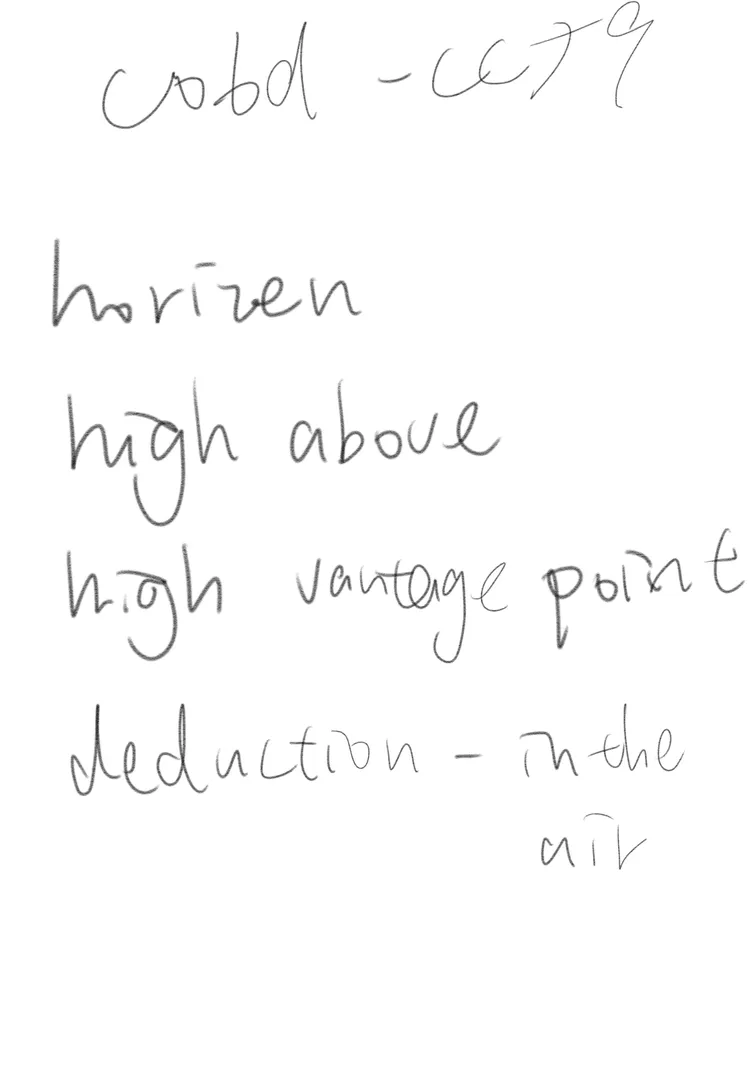 cobd - cc79
horizen
high above
high vantage point
deduction - in the
air